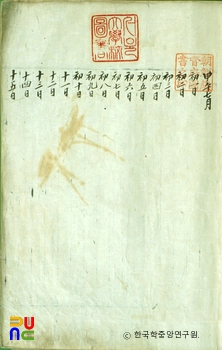 甲午七月
初一日
初二日
初三日
初四日
初五日
初六日
初七日
初八日
初九日
初十日
十一日
十二日
十三日
十四日
十五日
大學校
圖書
© 한국학중앙연구원